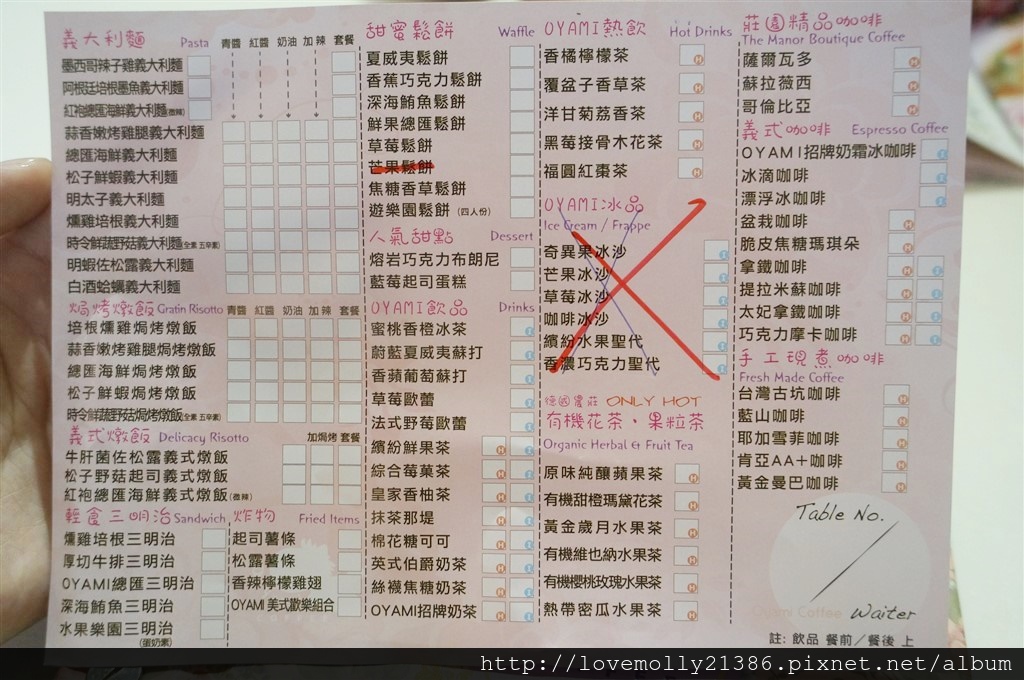 義大利麵 Pasta 青醬 紅醬 奶油 加辣 套餐
墨西哥辣子雞義大利麵
阿根廷培根墨魚義大利麵
紅袍總匯海鮮義大利麵(微辣)
蒜香嫩烤雞腿義大利麵
總匯海鮮義大利麵
松子鮮蝦義大利麵
明太子義大利麵
燻雞培根義大利麵
時令鮮蔬野菇義大利麵(全素 五辛素)
明蝦佐松露義大利麵
白酒蛤蠣義大利麵
焗烤燉飯 Gratin Risotto 青醬 紅醬 奶油 加辣 套餐
培根燻雞焗烤燉飯
蒜香嫩烤雞腿焗烤燉飯
總匯海鮮焗烤燉飯
松子鮮蝦焗烤燉飯
時令鮮蔬野菇焗烤燉飯(全素 五辛素)
義式燉飯 Delicacy Risotto 加焗烤 套餐
牛肝菌佐松露義式燉飯
松子野菇起司義式燉飯
紅袍總匯海鮮義式燉飯(微辣)
輕食三明治 Sandwich
燻雞培根三明治
厚切牛排三明治
OYAMI總匯三明治
深海鮪魚三明治
水果樂園三明治
(蛋奶素)
炸物 Fried Items
起司薯條
松露薯條
香辣檸檬雞翅
OYAMI 美式歡樂組合
甜蜜鬆餅 Waffle
夏威夷鬆餅
香蕉巧克力鬆餅
深海鮪魚鬆餅
鮮果總匯鬆餅
草莓鬆餅
芒果鬆餅
焦糖香草鬆餅
遊樂園鬆餅 (四人份)
人氣甜點 Dessert
熔岩巧克力布朗尼
藍莓起司蛋糕
OYAMI飲品 Drinks
蜜桃香橙冰茶 I
蔚藍夏威夷蘇打 I
香蘋葡萄蘇打 I
草莓歐蕾 I
法式野莓歐蕾 I
繽紛鮮果茶 H I
綜合莓菓茶 H I
皇家香柚茶 H I
抹茶那堤 H I
棉花糖可可 H I
英式伯爵奶茶 H I
絲襪焦糖奶茶 H I
OYAMI招牌奶茶 H I
OYAMI熱飲 Hot Drinks
香橘檸檬茶 H
覆盆子香草茶 H
洋甘菊荔香茶 H
黑莓接骨木花茶 H
福圓紅棗茶 H
OYAMI冰品
Ice Cream / Frappe
奇異果冰沙 I
芒果冰沙 I
草莓冰沙 I
咖啡冰沙 I
繽紛水果聖代 I
香濃巧克力聖代 I
德國農莊 ONLY HOT
有機花茶・果粒茶
Organic Herbal & Fruit Tea
原味純釀蘋果茶 H
有機甜橙瑪黛花茶 H
黃金歲月水果茶 H
有機維也納水果茶 H
有機櫻桃玫瑰水果茶 H
熱帶密瓜水果茶 H
莊園精品咖啡
The Manor Boutique Coffee
薩爾瓦多 H
蘇拉薇西 H
哥倫比亞 H
義式咖啡 Espresso Coffee
OYAMI招牌奶霜冰咖啡 I
冰滴咖啡 I
漂浮冰咖啡 I
盆栽咖啡 H
脆皮焦糖瑪琪朵 H
拿鐵咖啡 H I
提拉米蘇咖啡 H I
太妃拿鐵咖啡 H I
巧克力摩卡咖啡 H I
手工現煮咖啡
Fresh Made Coffee
台灣古坑咖啡 H
藍山咖啡 H
耶加雪菲咖啡 H
肯亞AA+咖啡 H
黃金曼巴咖啡 H
Table No.
Oyami Coffee Waiter
註: 飲品 餐前／餐後 上
http://lovemolly21386.pixnet.net/album